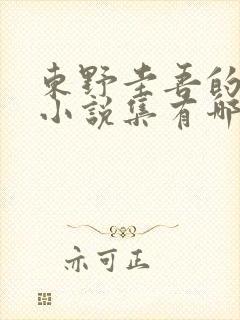 東野圭吾的
小說集有哪
亦可正